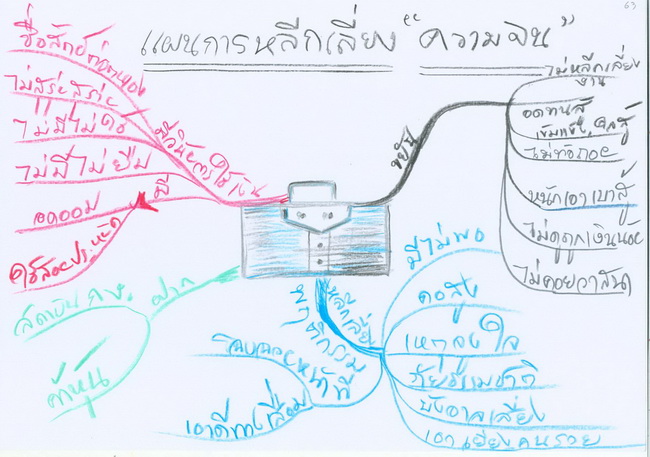 63
แผนการหลีกเลี่ยง "ความจน"
ซื่อสัตย์ต่อตนเอง
ไม่สุรุ่ยสุร่าย
ไม่มีไม่ใช้
ไม่มีไม่ยืม
อดออม
ใช้สอยประหยัด
มี
มีวินัยการใช้เงิน
ขยัน
ไม่หลีกเลี่ยง
งาน
อดทนสู้
เข้มแข็ง
ไม่ท้อถอย
หนักเอาเบาสู้
ไม่ดูถูกเงินน้อย
ไม่คอยวาสนา
ฝาก
สถาบัน
ค้าหุ้น
หลีกเลี่ยง
พฤติกรรม
มีไม่พอ
คอสูง
บังอาจเสี่ยง
เอาเยี่ยง
หน้าที่
เอาดีทางเสื่อม